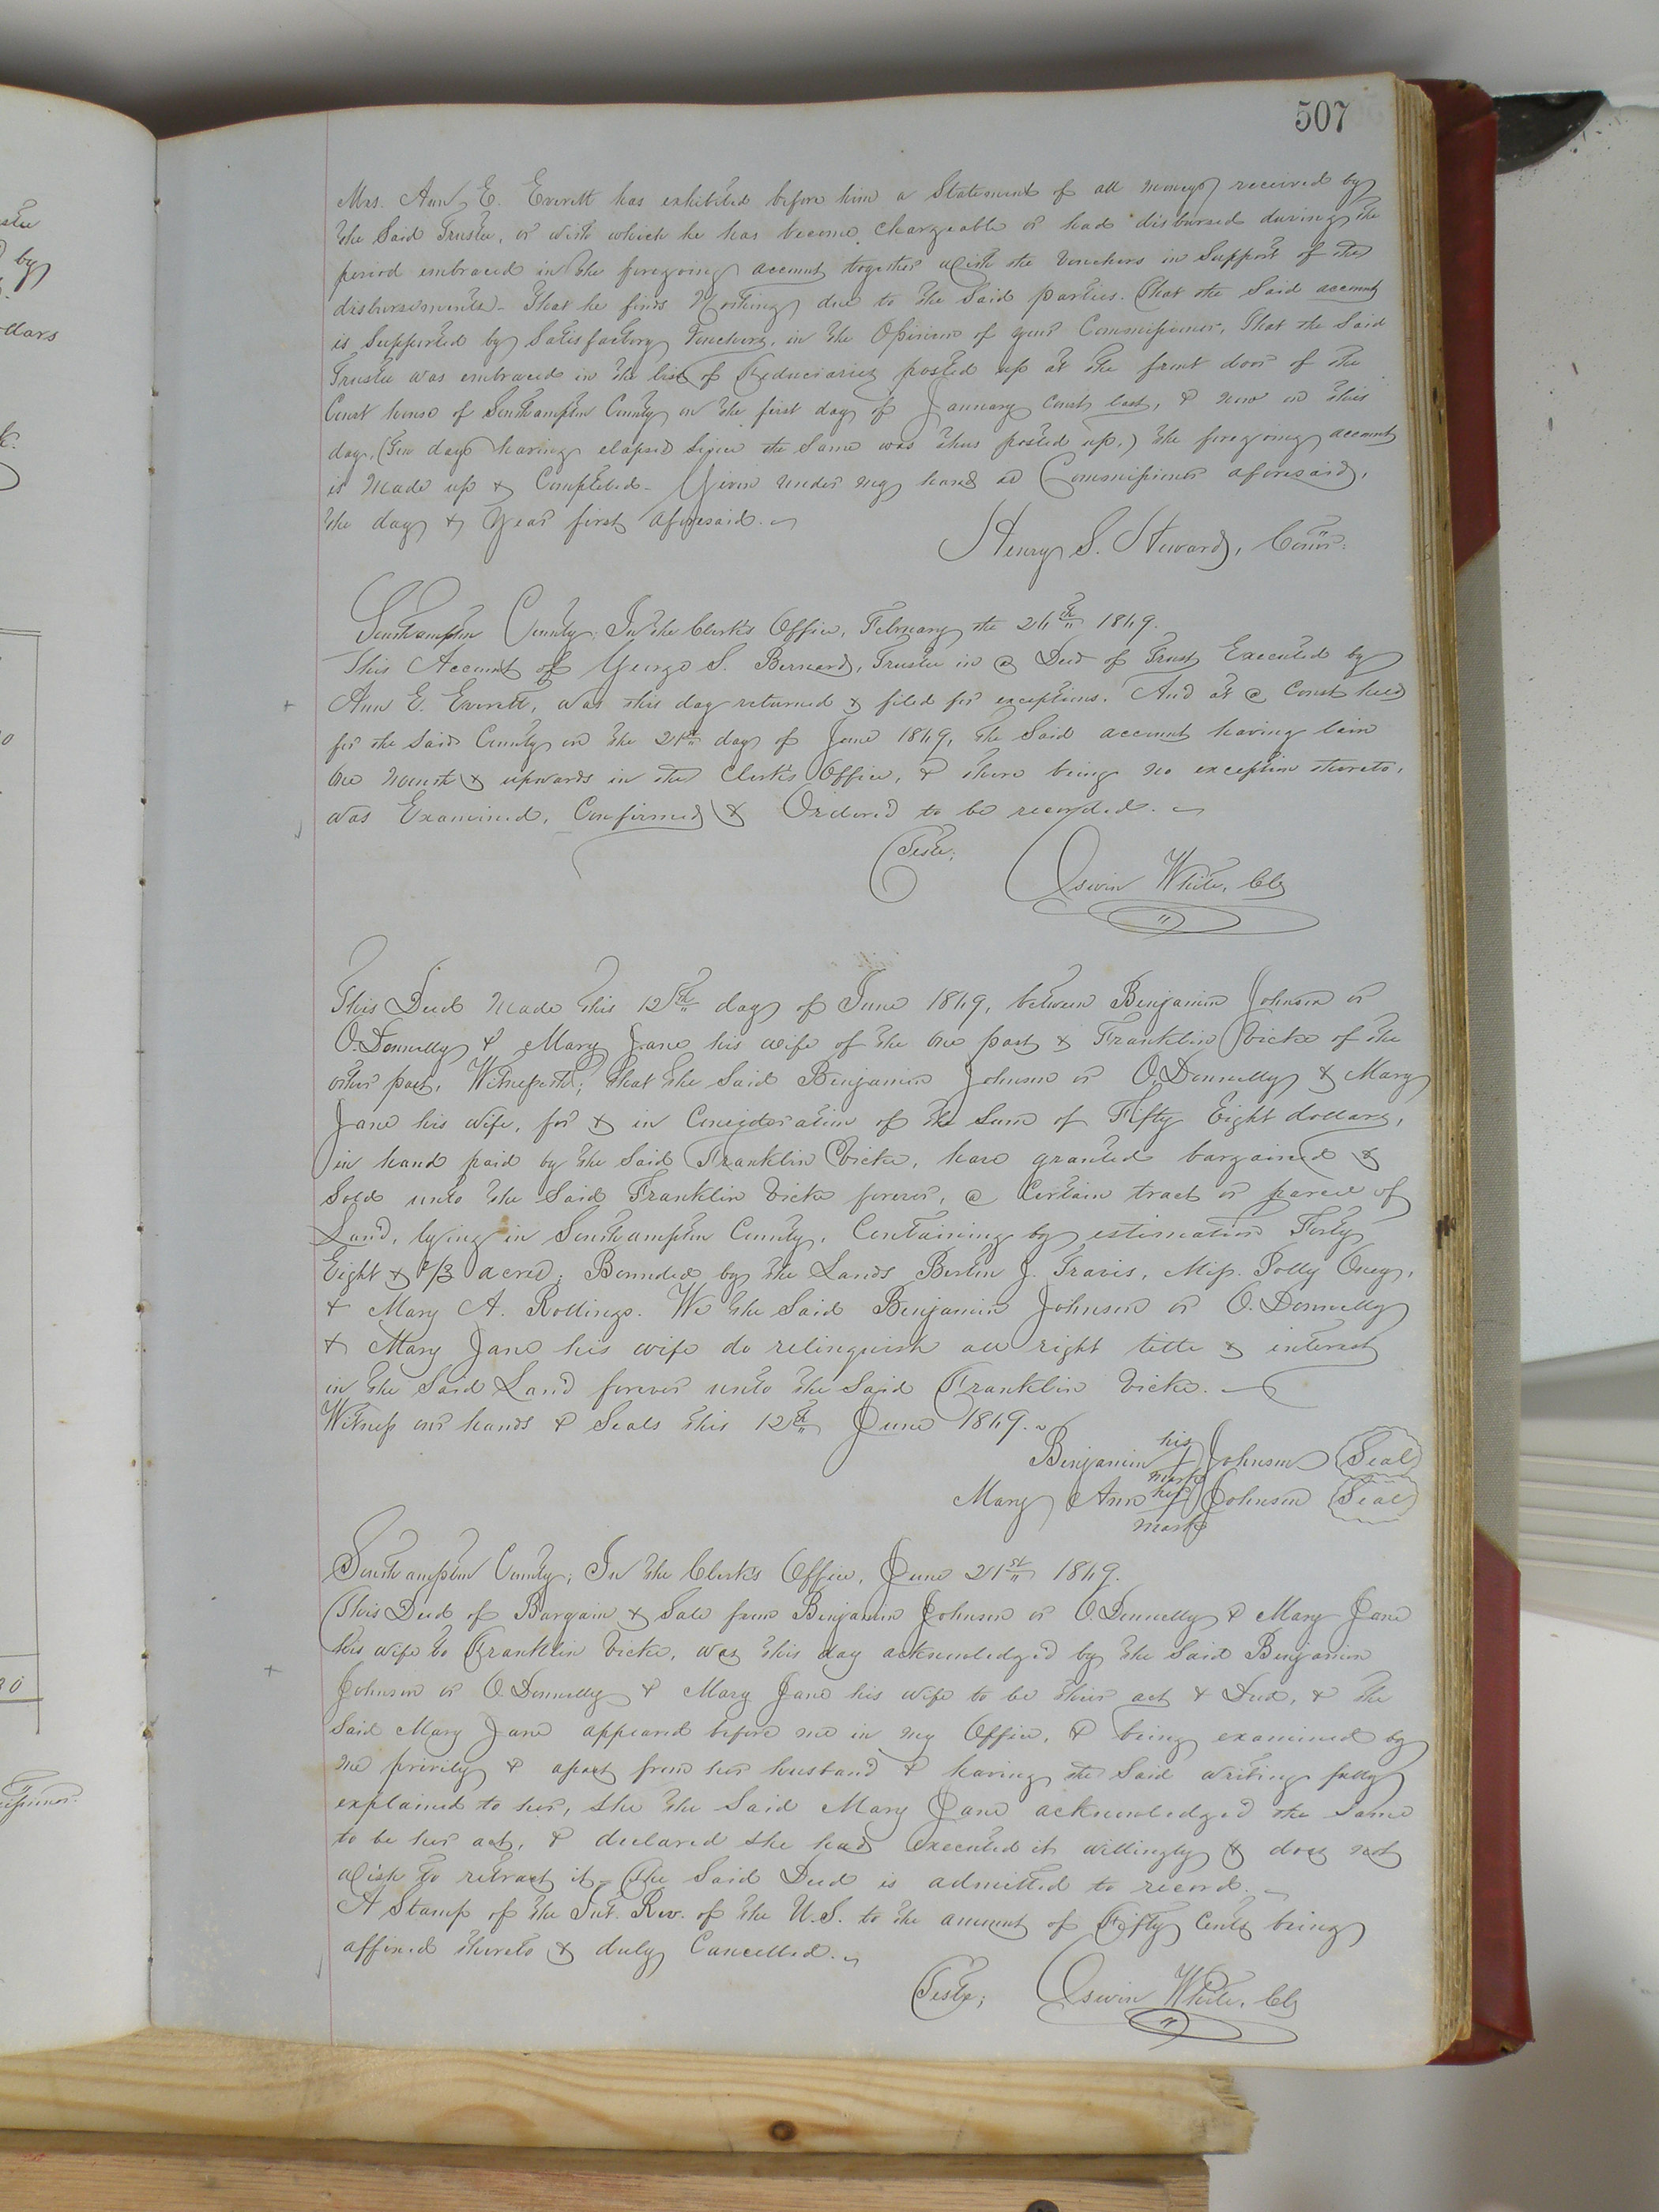 507
Mrs. Ann E. Everett has exhibited before him a Statement of all moneys received by
the Said Trustee, or with which he has become Chargeable or had disbursed during the
period embraced in the foregoing account together with the Vouchers in Support of the
disbursements. That he finds Nothing due to the Said parties. That the Said account
is Supported by Satisfactory Vouchers, in the Opinion of your Commissioner, That the Said
Trustee was embraced in the list of Fiduciaries posted up at the front door of the
Court house of Southampton County on the first day of January Court last, & now on this
day, (Ten days having elapsed Since the Same was thus posted up,) the foregoing account
is Made up & Completed. Given under my hand as Commissioner aforesaid,
the day & Year first aforesaid.
Henry S. Steward, Comr.
Southampton County; In the Clerk's Office, February the 24th 1869.
This Account of George S. Bernard, Trustee in a Deed of Trust Executed by
Ann E. Everett, was this day returned & filed for exceptions. And at a Court held
for the Said County on the 21st day of June 1869, the Said account having lain
One Month & upwards in the Clerk's Office, & there being no exception thereto,
was Examined, Confirmed & Ordered to be recorded.
Teste;
Oswin White, Clk
This Deed Made this 12th day of June 1869, between Benjamin Johnson or
O.Donnelly & Mary Jane his wife of the One part & Franklin Vicke of the
other part, Witnesseth; that the Said Benjamin Johnson or O.Donnelly & Mary
Jane his wife, for & in Consideration of the Sum of Fifty Eight dollars,
in hand paid by the Said Franklin Vicke, have granted bargained &
Sold unto the Said Franklin Vicke forever, a Certain tract or parcel of
Land, lying in Southampton County, Containing by estimation Forty
Eight & 2/3 acres; Bounded by the Lands J. Travis, Miss. Polly
& Mary A. Rollings. We the Said Benjamin Johnson or O.Donnelly
& Mary Jane his wife do relinquish all right title & interest
in the Said Land forever unto the Said Franklin Vicke.
Witness our hands & Seals this 12th June 1869.
Benjamin his mark Johnson Seal
Mary Ann her mark Johnson Seal
Southampton County; In the Clerk's Office, June 21st 1869.
This Deed of Bargain & Sale from Benjamin Johnson or O.Donnelly & Mary Jane
his wife to Franklin Vicke, was this day acknowledged by the Said Benjamin
Johnson or O.Donnelly & Mary Jane his wife to be their act & Deed, & the
Said Mary Jane appeared before me in my Office, & being examined by
me privily & apart from her husband & having the Said writing fully
explained to her, She the Said Mary Jane acknowledged the Same
to be her act, & declared She had Executed it willingly & does not
wish to retract it. The Said Deed is admitted to record.
A Stamp of the Int. Rev. of the U.S. to the amount of Fifty Cents being
affixed thereto & duly Cancelled.
Teste;
Oswin White, Clk